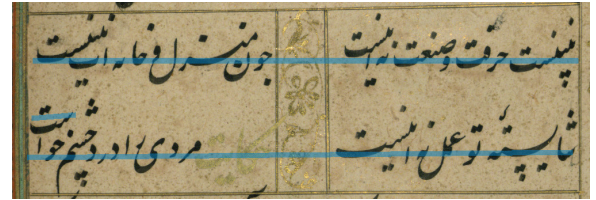 نیینست حرفت و صنعت نه اینست جون منزل و خانه ات نیینست
شایستهٔ تو عمل نه اینست مردی را درد چشم خواست